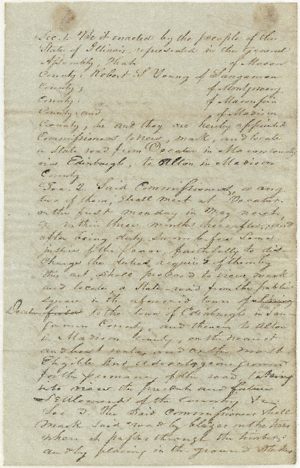 Sec. 1. Be it enacted by the people of the
State of Illinois, represented in the general
Assembly, That of Macon
County; Robert S Young of Sangamon
County; of Montgomery
County of Macoupin
County, and of Madison
County, be and they are hereby appointed
Commissioners to view, mark, and locate
a State road from Decatur in Macon county
via Edinburgh, to Alton in Madison
County
Sec. 2. Said Commissioners, or any
two of them, shall meet at Decatur,
on the first monday in May next,
or within three months thereafter, and
after being duly sworn before some
justice of the peace, faithfully to dis-
charge the duties required of them by
this act, shall proceed to view, mark
and locate, a State road from the public
square in the aforesaid town of
Decatur to the town of Edinburgh in San-
gamon County, and thence to Alton
in Madison County, on the nearest
and best route, and on the most
Eligible and advantageous ground
for the permanency of the road, having
due regard to the present and future
settlements of the country
Sec 3. The said Commissioners shall
mark said road by blazes on the trees
where it passes through the timber,
and by placing in the ground stakes